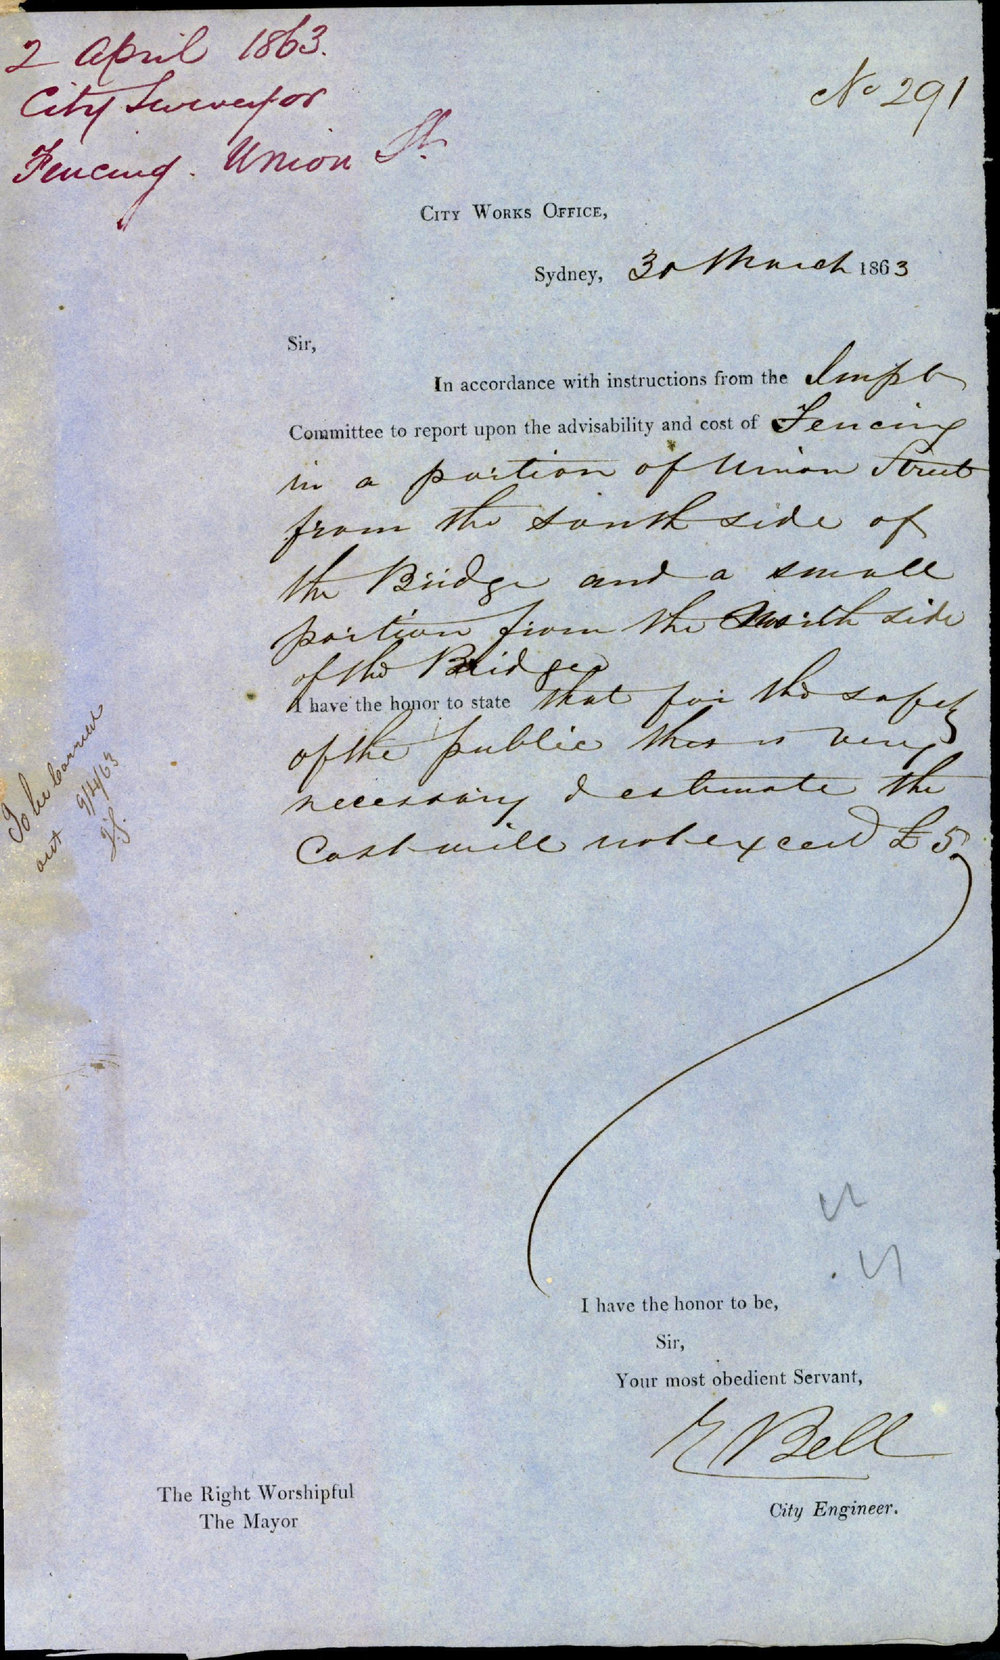 2 April 1863.
City Surveyor
Fencing. Union St.
No 291
City Works Office,
Sydney, 30 March 1863
Sir,
In accordance with instructions from the Impt
Committee to report upon the advisability and cost of Fencing
in a portion of Union Street
from the south side of
the Bridge and a small
portion from the North side
of the Bridge
I have the honor to state that for the safety
of the public this is very
necessary I estimate the
Cost will not exceed £5.
To be Carried
out 9/4/63
I have the honor to be,
Sir,
Your most obedient Servant,
E Bell
City Engineer.
The Right Worshipful
The Mayor